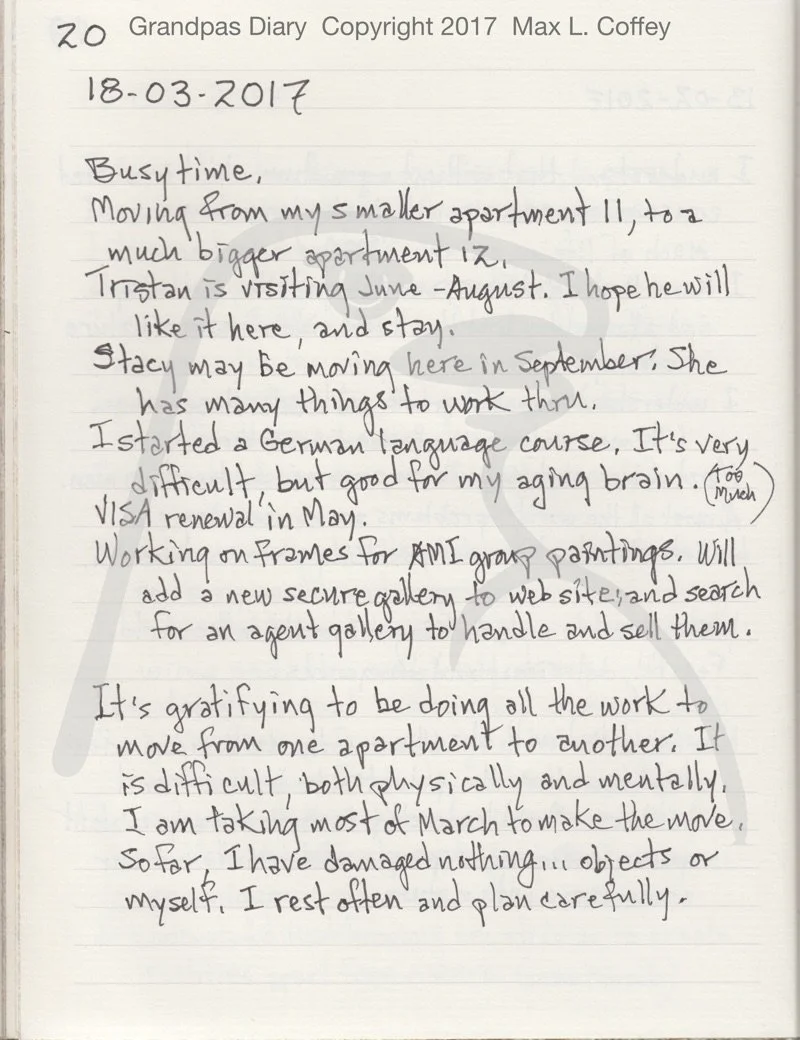 20 Grandpas Diary Copyright 2017 Max L. Coffey
18-03-2017
Busy time,
Moving from my smaller apartment 11, to a
much bigger apartment 12.
Tristan is visiting June - August. I hope he will
like it here, and stay.
Stacy may be moving here in September. She
has many things to work thru.
I started a German language course. It's very
difficult, but good for my aging brain. (too
much)
VISA renewal in May.
Working on frames for AMI group paintings. Will
add a new secure gallery to web site, and search
for an agent gallery to handle and sell them.
It's gratifying to be doing all the work to
move from one apartment to another. It
is difficult, both physically and mentally.
I am taking most of March to make the move.
So far, I have damaged nothing... objects or
myself. I rest often and plan carefully.